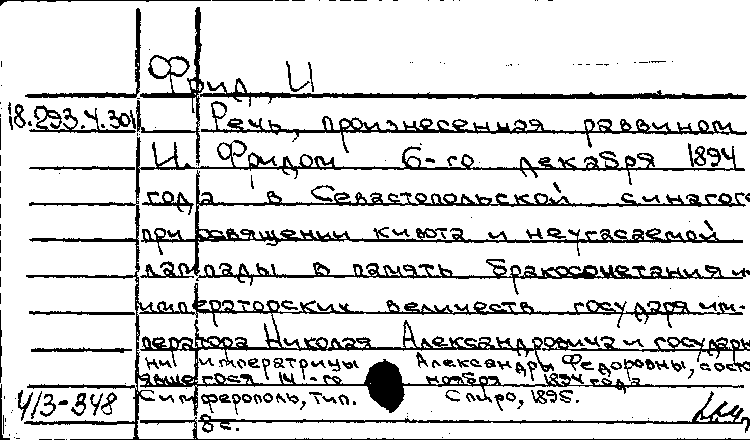 Фрид, И
18.293.4.301. Речь, произнесенная раввином
И. Фридом 6-го декабря 1894
года в Севастопольской синагоге
при освящении кивота и неугасаемой
лампады в память бракосочетания их
императорских величеств государя им-
ператора Николая Александровича и государы
ни императрицы Александры Федоровны, состо
явшегося 14-го ноября 1894 года
У/3-348 Симферополь, тип. Спиро, 1895.
8 с.